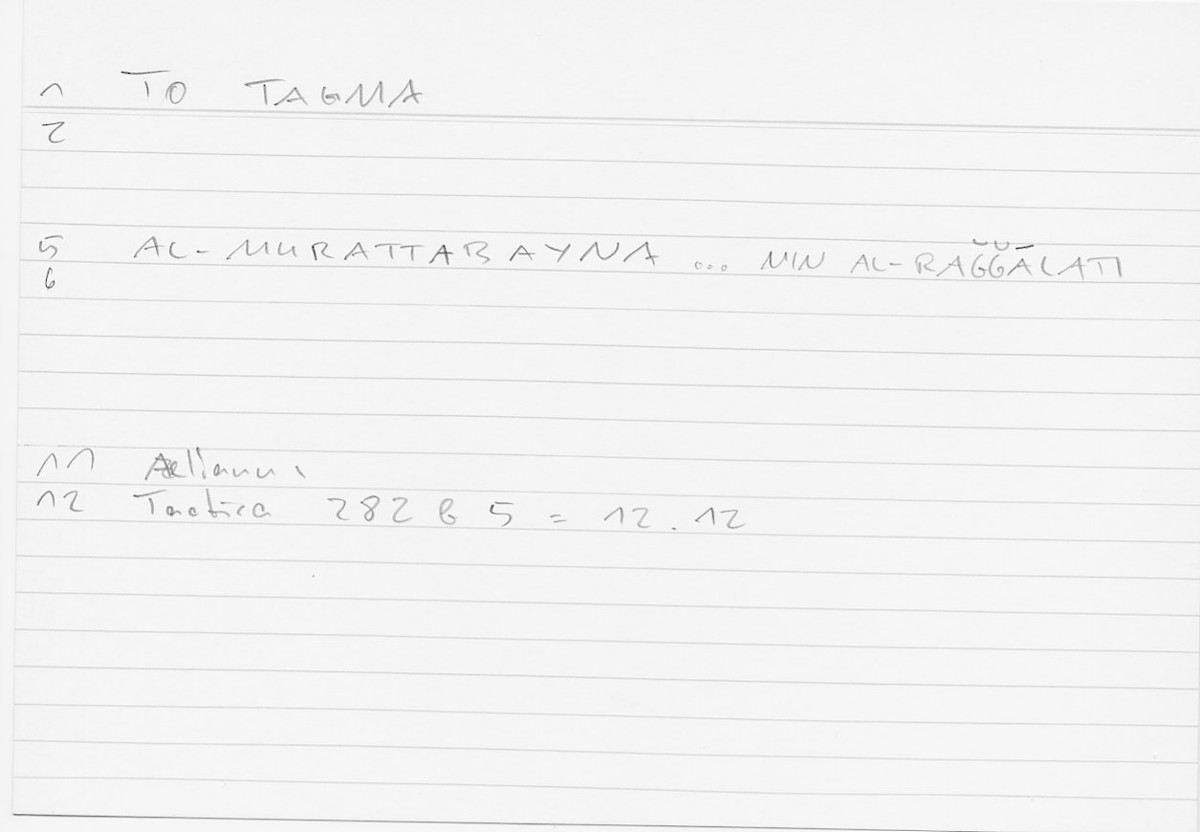 1 TO TAGMA
2
5 AL-MURATTABAYNA ... MIN AL-RAǦǦĀLATI
6
11 Aelianus
12 Tactica 282 b 5 = 12.12